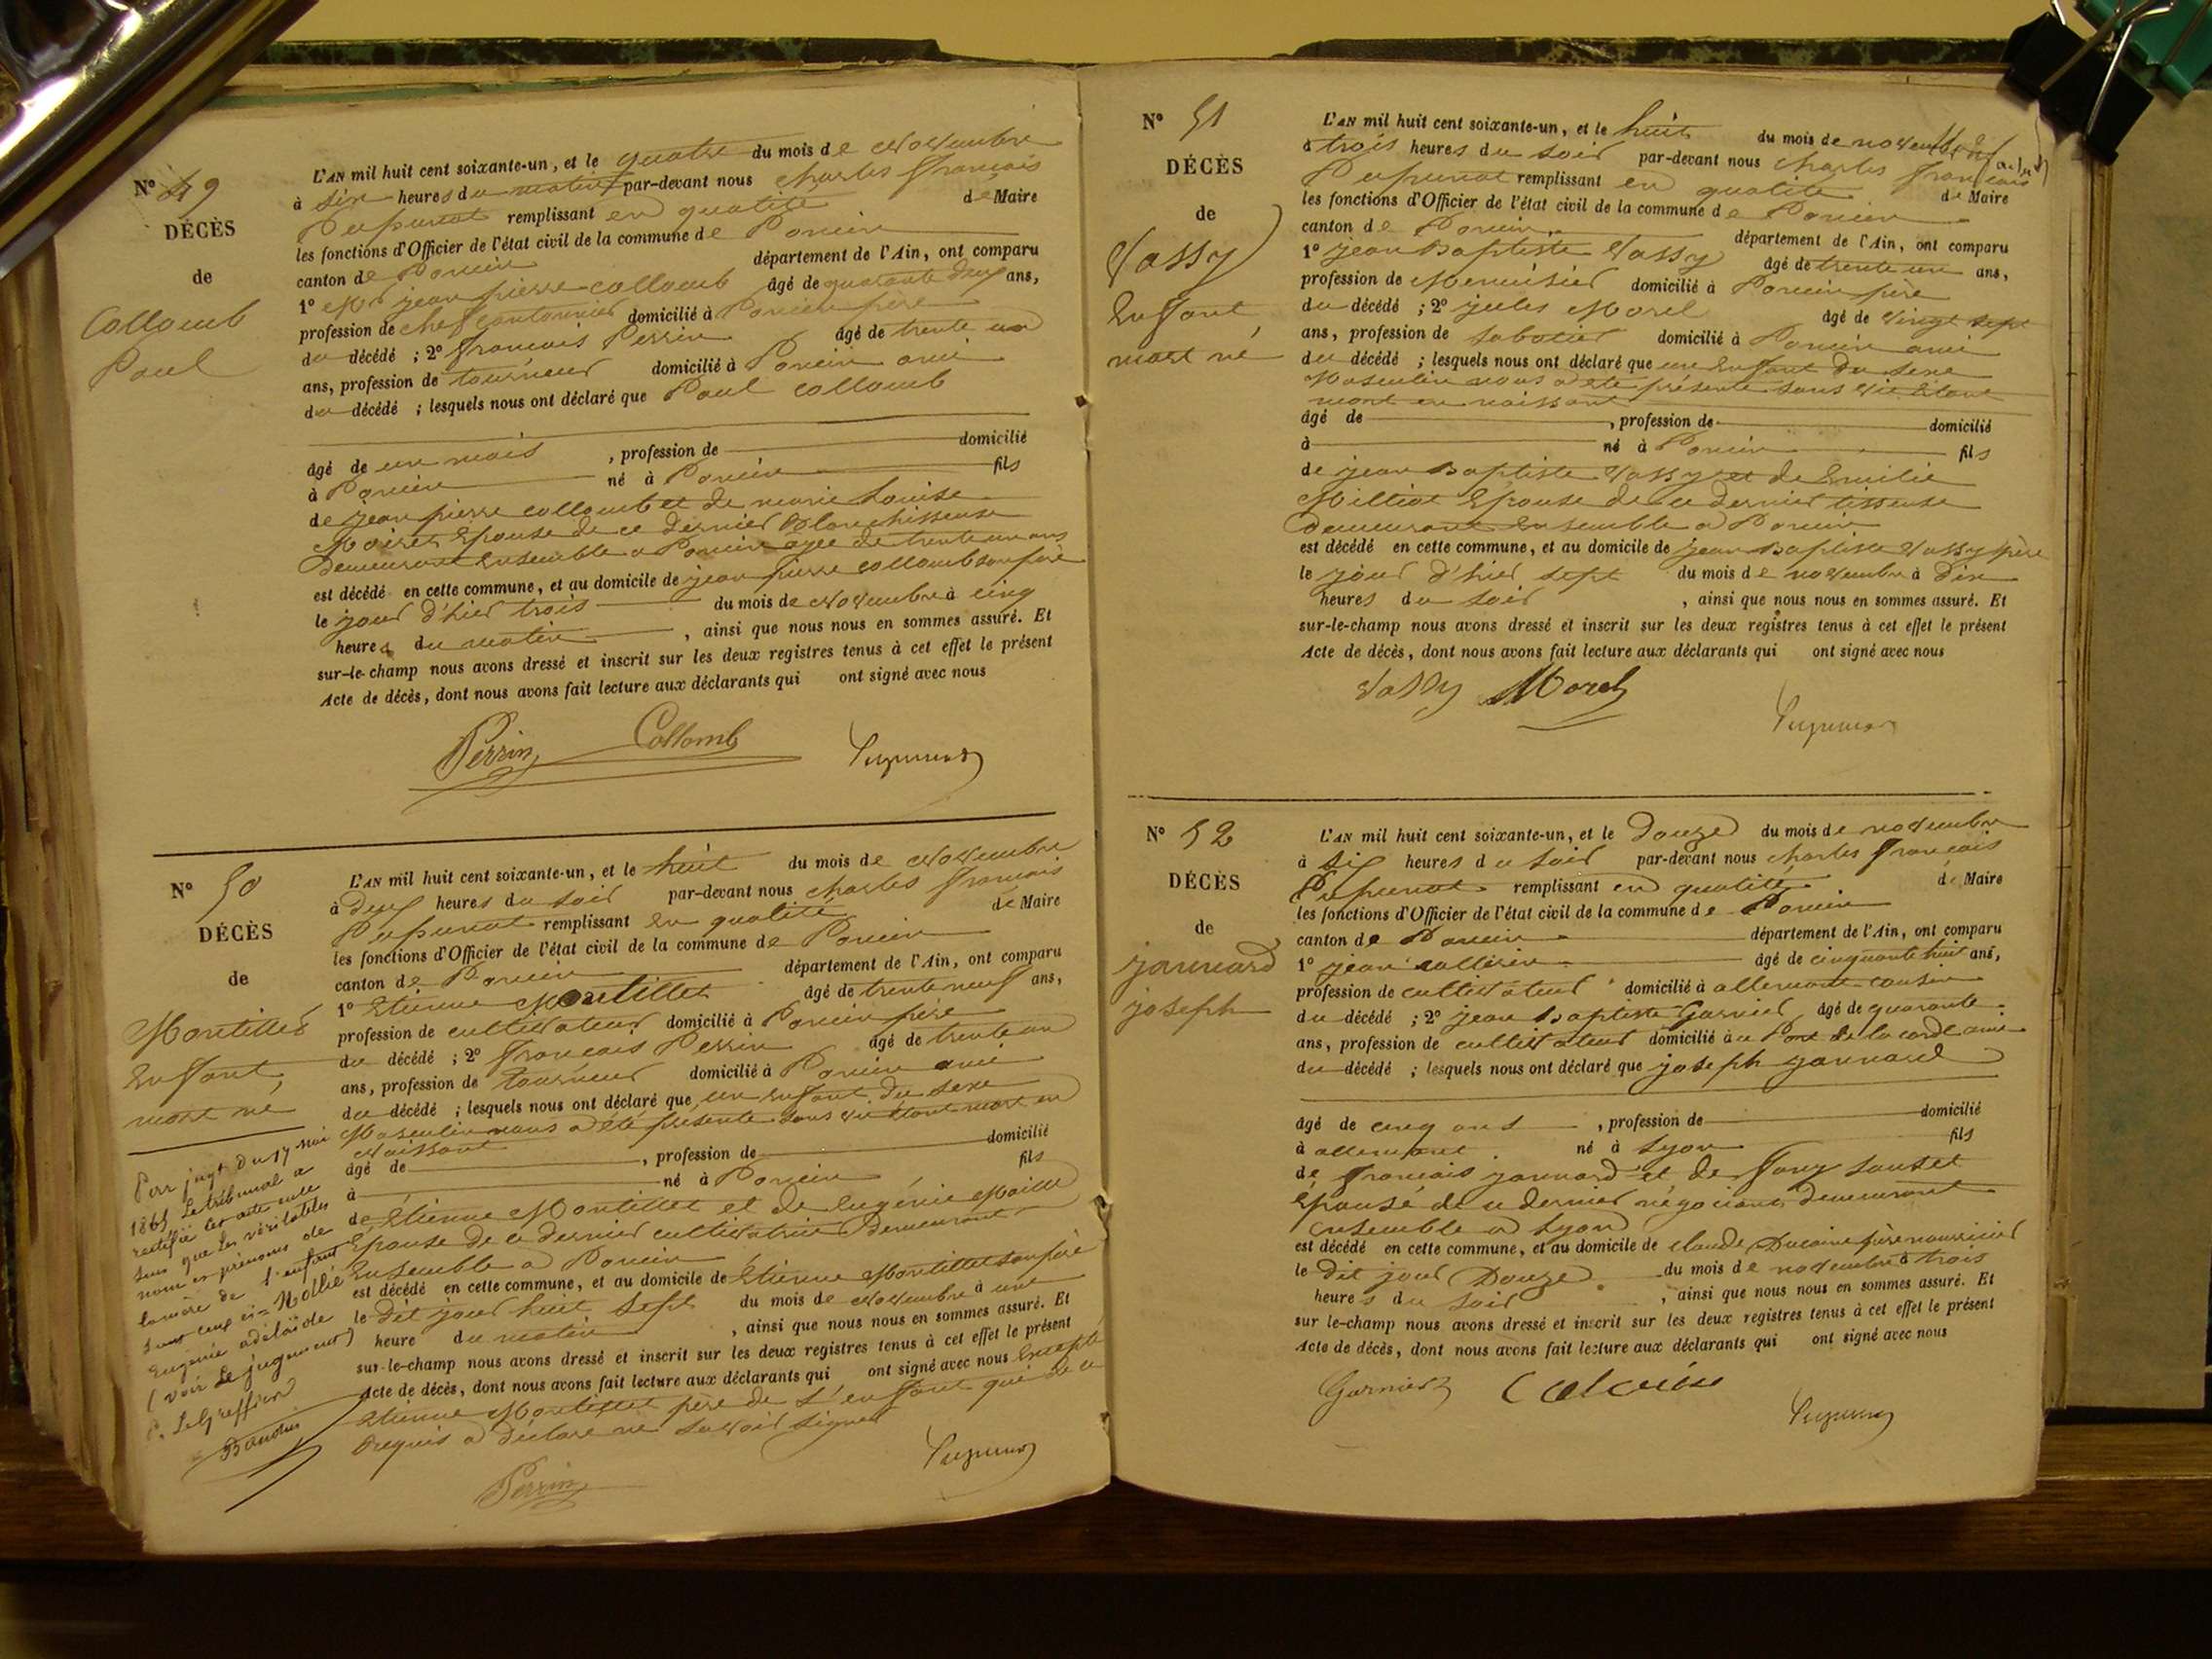 N° 49
DÉCÈS
de
Collomb
Paul
L'AN mil huit cent soixante-un, et le quatre du mois de Novembre
à six heures du matin par-devant nous charles françois
Pupunat remplissant en qualité de Maire
les fonctions d'Officier de l'état civil de la commune de Poncin
canton de Poncin département de l'Ain, ont comparu
1° Mr jean pierre collomb âgé de quarante deux ans,
profession de chef cantonnier domicilié à Poncin père
du décédé ; 2° françois Perrin âgé de trente un
ans, profession de tourneur domicilié à Poncin ami
du décédé ; lesquels nous ont déclaré que Paul collomb
âgé de un mois , profession de domicilié
à Poncin né à Poncin fils
de jean pierre collomb et de marie Louise
Epouse de ce dernier Blanchisseuse
Demeurant Ensemble a Poncin âgée de trente un ans
est décédé en cette commune, et au domicile de jean pierre collomb son père
le jour d'hier trois du mois de Novembre à cinq
heures du matin , ainsi que nous nous en sommes assuré. Et
sur-le-champ nous avons dressé et inscrit sur les deux registres tenus à cet effet le présent
Acte de décès, dont nous avons fait lecture aux déclarants qui ont signé avec nous
Perrin Collomb Pupunat
N° 50
DÉCÈS
de
Montillet
Enfant,
mort né
Par jugt du 17 mai
1865 Le tribunal a
rectifié cet acte en ce
sens que les véritables
nom et prénoms de
la mère de l'enfant
sont ceux ci = Mollié
Eugénie adélaïde
(voir le jugement)
P. Le Greffier
Baudin
L'AN mil huit cent soixante-un, et le huit du mois de Novembre
à Deux heures du soir par-devant nous charles françois
Pupunat remplissant en qualité de Maire
les fonctions d'Officier de l'état civil de la commune de Poncin
canton de Poncin département de l'Ain, ont comparu
1° Etienne Montillet âgé de trente neuf ans,
profession de cultivateur domicilié à Poncin père
du décédé ; 2° françois Perrin âgé de trente un
ans, profession de tourneur domicilié à Poncin ami
du décédé ; lesquels nous ont déclaré que un Enfant du sexe
Masculin nous a été présenté sans vie étant mort en
Naissant
âgé de , profession de domicilié
à né à Poncin fils
de Etienne Montillet et de Eugénie Maillé
Epouse de ce dernier cultivatrice Demeurant
Ensemble a Poncin
est décédé en cette commune, et au domicile de Etienne Montillet son père
le dit jour huit sept du mois de Novembre à une
heure du matin , ainsi que nous nous en sommes assuré. Et
sur-le-champ nous avons dressé et inscrit sur les deux registres tenus à cet effet le présent
Acte de décès, dont nous avons fait lecture aux déclarants qui ont signé avec nous Excepté
Etienne Montillet père de l'enfant qui de ce
Requis a déclaré ne savoir signer
Perrin Pupunat
N° 51
DÉCÈS
de
Vassy
Enfant,
mort né
L'AN mil huit cent soixante-un, et le huit du mois de novembre
à trois heures du soir par-devant nous charles françois
Pupunat remplissant en qualité de Maire
les fonctions d'Officier de l'état civil de la commune de Poncin
canton de Poncin département de l'Ain, ont comparu
1° jean Baptiste Vassy âgé de trente un ans,
profession de Menuisier domicilié à Poncin père
du décédé ; 2° jules Morel âgé de vingt sept
ans, profession de sabotier domicilié à Poncin ami
du décédé ; lesquels nous ont déclaré que un Enfant du sexe
Masculin nous a été présenté sans vie Etant
mort en naissant
âgé de , profession de domicilié
à né à Poncin fils
de jean Baptiste Vassy et de Emilie
Milliat Epouse de ce dernier tisseuse
Demeurant Ensemble a Poncin
est décédé en cette commune, et au domicile de jean Baptiste Vassy père
le jour d'hier sept du mois de novembre à Dix
heures du soir , ainsi que nous nous en sommes assuré. Et
sur-le-champ nous avons dressé et inscrit sur les deux registres tenus à cet effet le présent
Acte de décès, dont nous avons fait lecture aux déclarants qui ont signé avec nous
Vassy Morel Pupunat
N° 52
DÉCÈS
de
jannard
joseph
L'AN mil huit cent soixante-un, et le Douze du mois de novembre
à six heures du soir par-devant nous charles françois
Pupunat remplissant en qualité de Maire
les fonctions d'Officier de l'état civil de la commune de Poncin
canton de Poncin département de l'Ain, ont comparu
1° jean âgé de cinquante huit ans,
profession de cultivateur domicilié à allement cousin
du décédé ; 2° jean Baptiste Garnier âgé de quarante
ans, profession de cultivateur domicilié à au Pont de la corde ami
du décédé ; lesquels nous ont déclaré que joseph jannard
âgé de cinq ans , profession de domicilié
à allement né à Lyon fils
de françois jannard et de fany
Epouse de ce dernier négociant demeurant
Ensemble a Lyon
est décédé en cette commune, et au domicile de claude père nourricier
le dit jour Douze du mois de novembre à trois
heures du soir , ainsi que nous nous en sommes assuré. Et
sur le-champ nous avons dressé et inscrit sur les deux registres tenus à cet effet le présent
Acte de décès, dont nous avons fait lecture aux déclarants qui ont signé avec nous
Garnier Pupunat